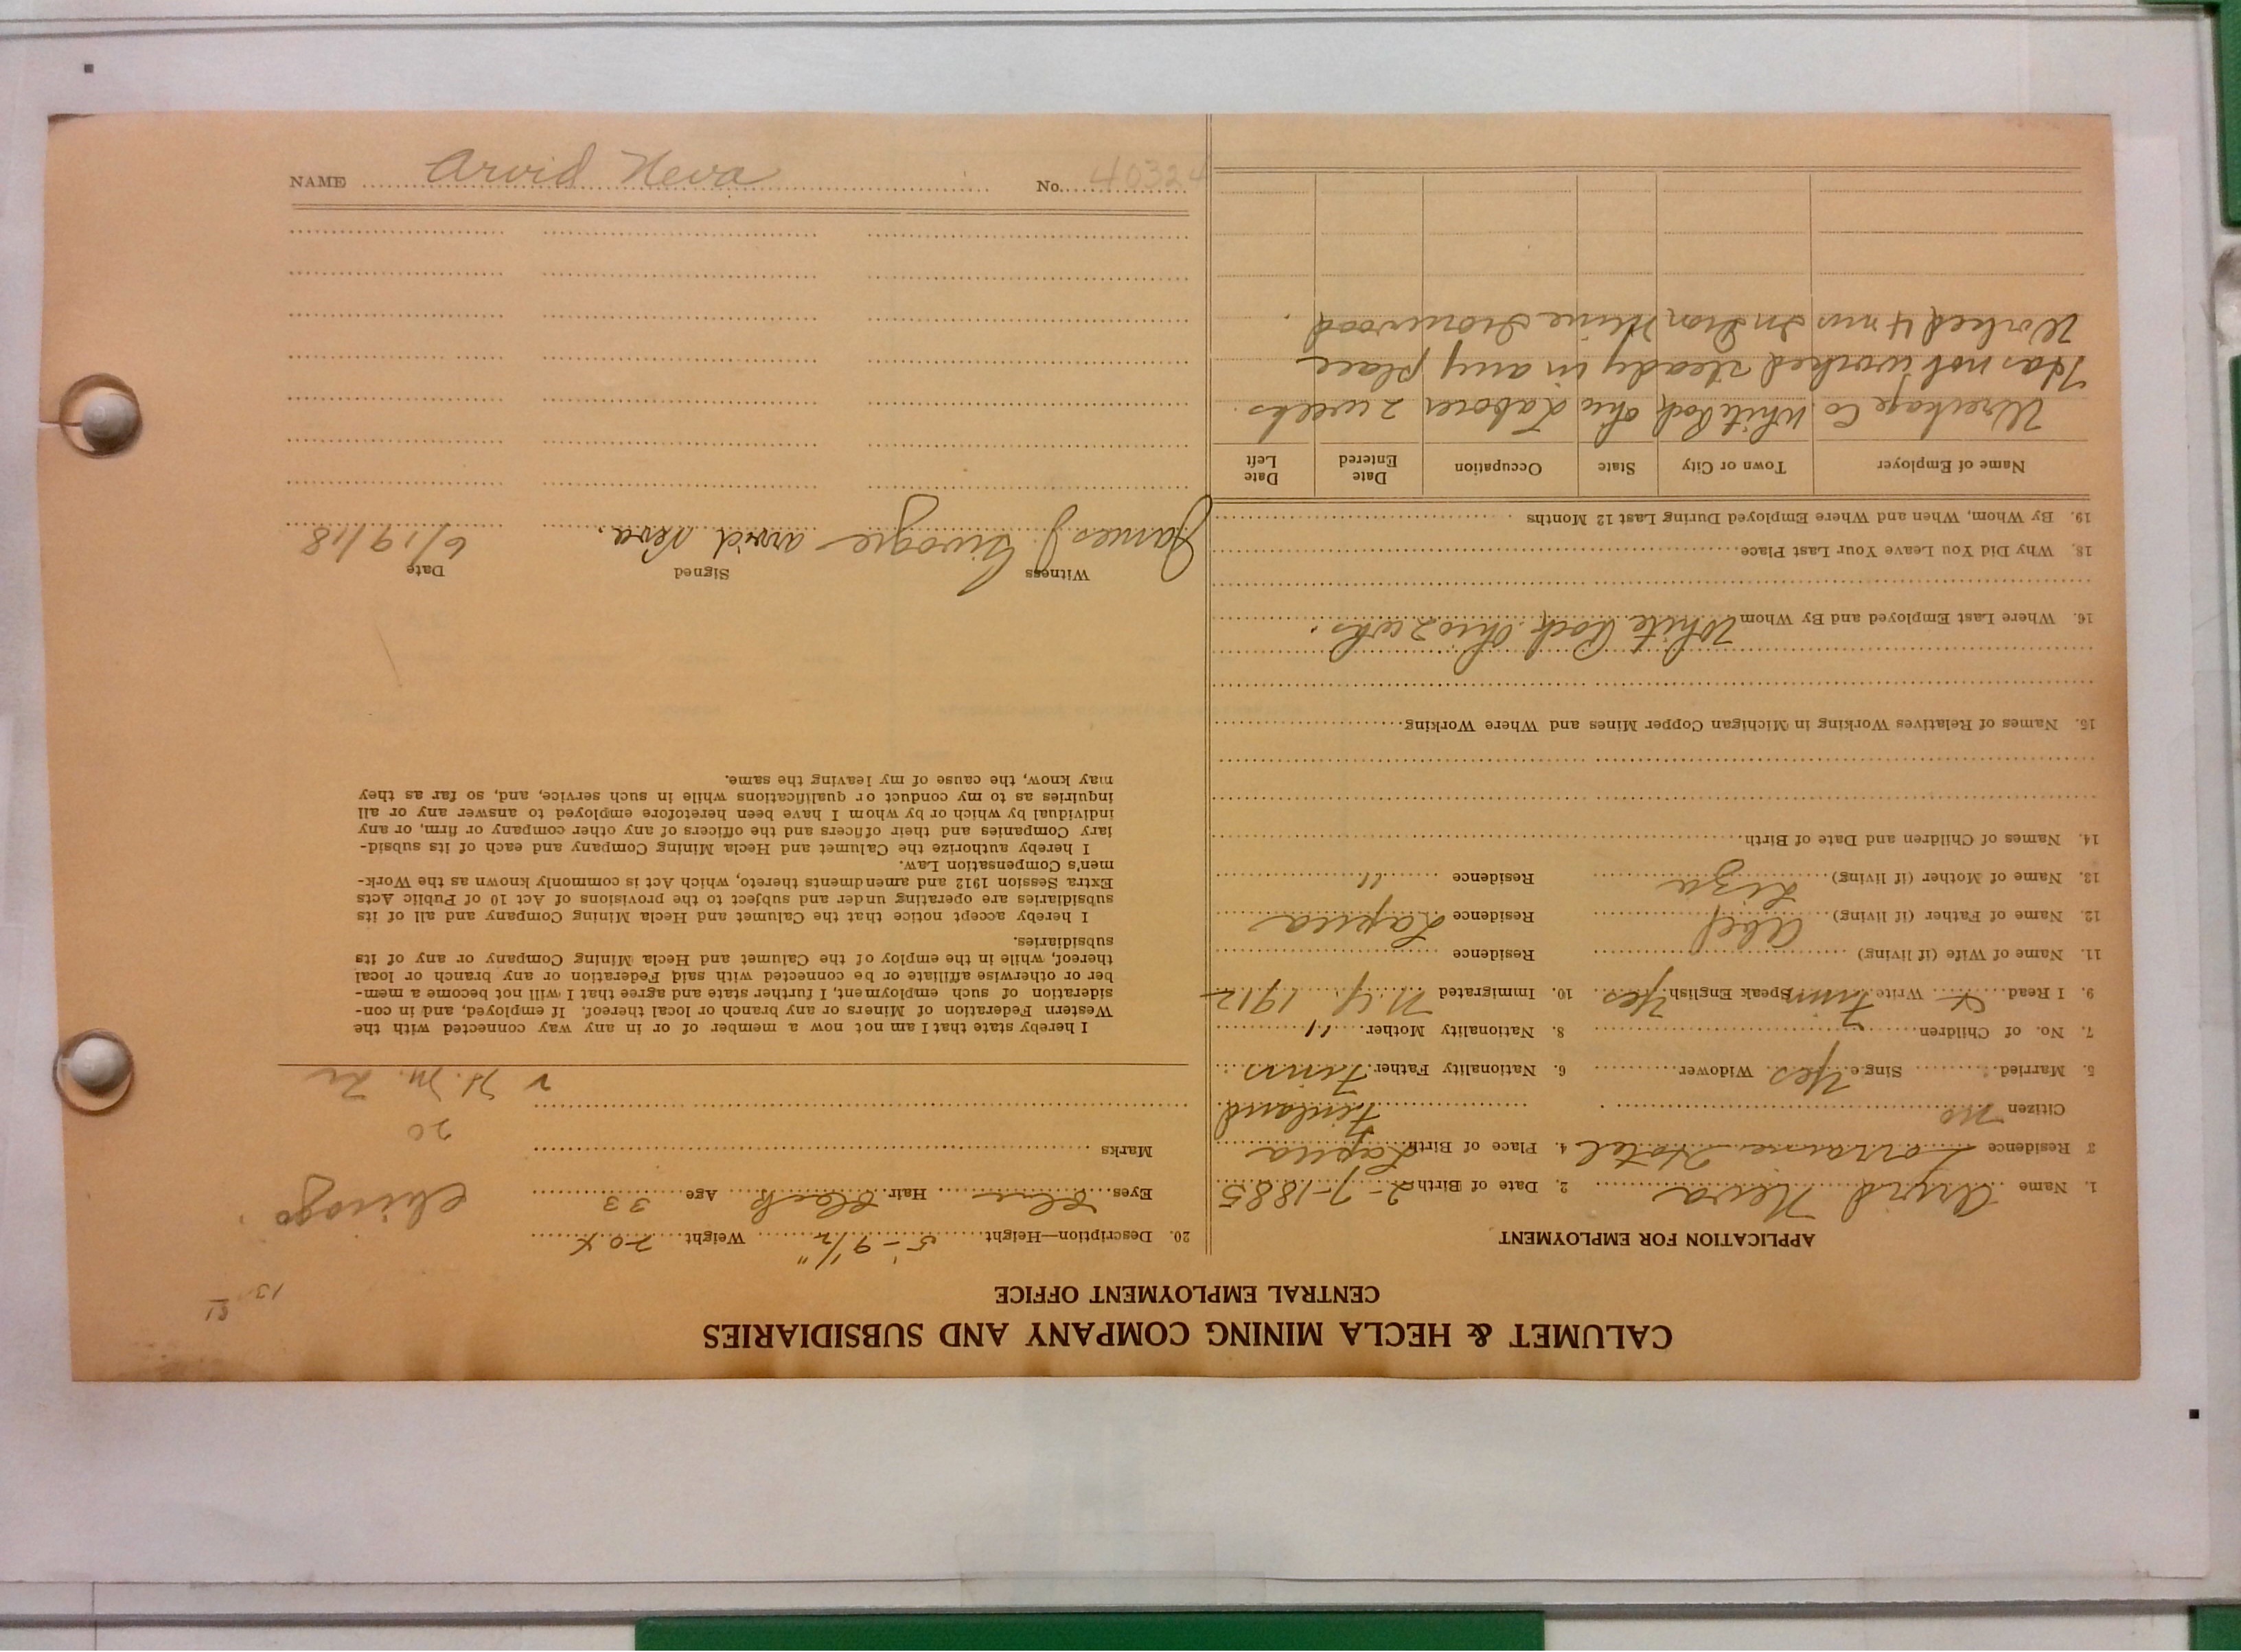 CALUMET & HECLA MINING COMPANY AND SUBSIDIARIES
CENTRAL EMPLOYMENT OFFICE
APPLICATION FOR EMPLOYMENT
1. Name Arvid Neva 2. Date of Birth 2-7-1885
3 Residence Lorraine Hotel 4. Place of Birth Lapua
Citizen no Finland
5. Married Single Yes Widower 6. Nationality Father Finns
7. No. of Children 8. Nationality Mother "
9. I Read X Write Finn Speak English Yes 10. Immigrated N.Y. 1912
11. Name of Wife (if living) Residence
12. Name of Father (if living) Abel Residence Lapua
13. Name of Mother (if living) Liza Residence "
14. Names of Children and Date of Birth
15. Names of Relatives Working in Michigan Copper Mines and Where Working
16. Where Last Employed and By Whom White Rock Ohio 2 wks.
18. Why Did You Leave Your Last Place
19. By Whom, When and Where Employed During Last 12 Months
Name of Employer Town or City State Occupation Date Entered Date Left
Wreckage Co White Rock Ohio Laborer 2 weeks.
Has not worked steady in any place
Worked 4 mos in Iron Mine Ironwood
13 51
20. Description—Height 5-9 1/2" Weight 204
Eyes Blue Hair Black Age 33 Chicago
Marks
20
I hereby state that I am not now a member of or in any way connected with the
Western Federation of Miners or any branch or local thereof. If employed, and in con-
sideration of such employment, I further state and agree that I will not become a mem-
ber or otherwise affiliate or be connected with said Federation or any branch or local
thereof, while in the employ of the Calumet and Hecla Mining Company or any of its
subsidiaries.
I hereby accept notice that the Calumet and Hecla Mining Company and all of its
subsidiaries are operating under and subject to the provisions of Act 10 of Public Acts
Extra Session 1912 and amendments thereto, which Act is commonly known as the Work-
men's Compensation Law.
I hereby authorize the Calumet and Hecla Mining Company and each of its subsid-
iary Companies and their officers and the officers of any other company or firm, or any
individual by which or by whom I have been heretofore employed to answer any or all
inquiries as to my conduct or qualifications while in such service, and, so far as they
may know, the cause of my leaving the same.
Witness Signed Date
James J. arvid Neva. 6/19/18
NAME Arvid Neva No. 40324